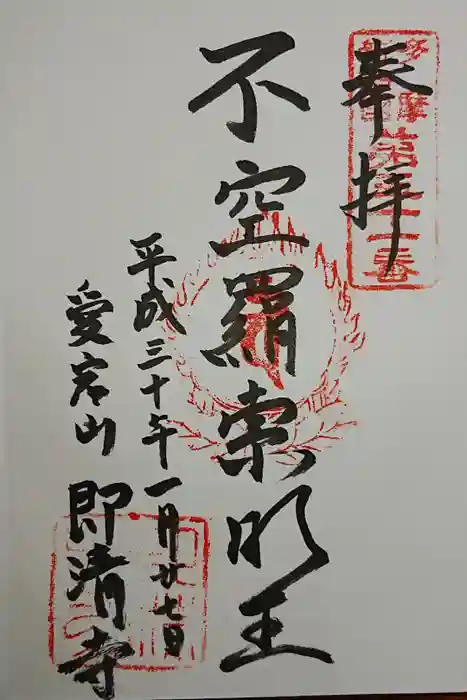 奉拝
多摩
不空羂索明王
平成三十年一月廿七日
愛宕山 即清寺